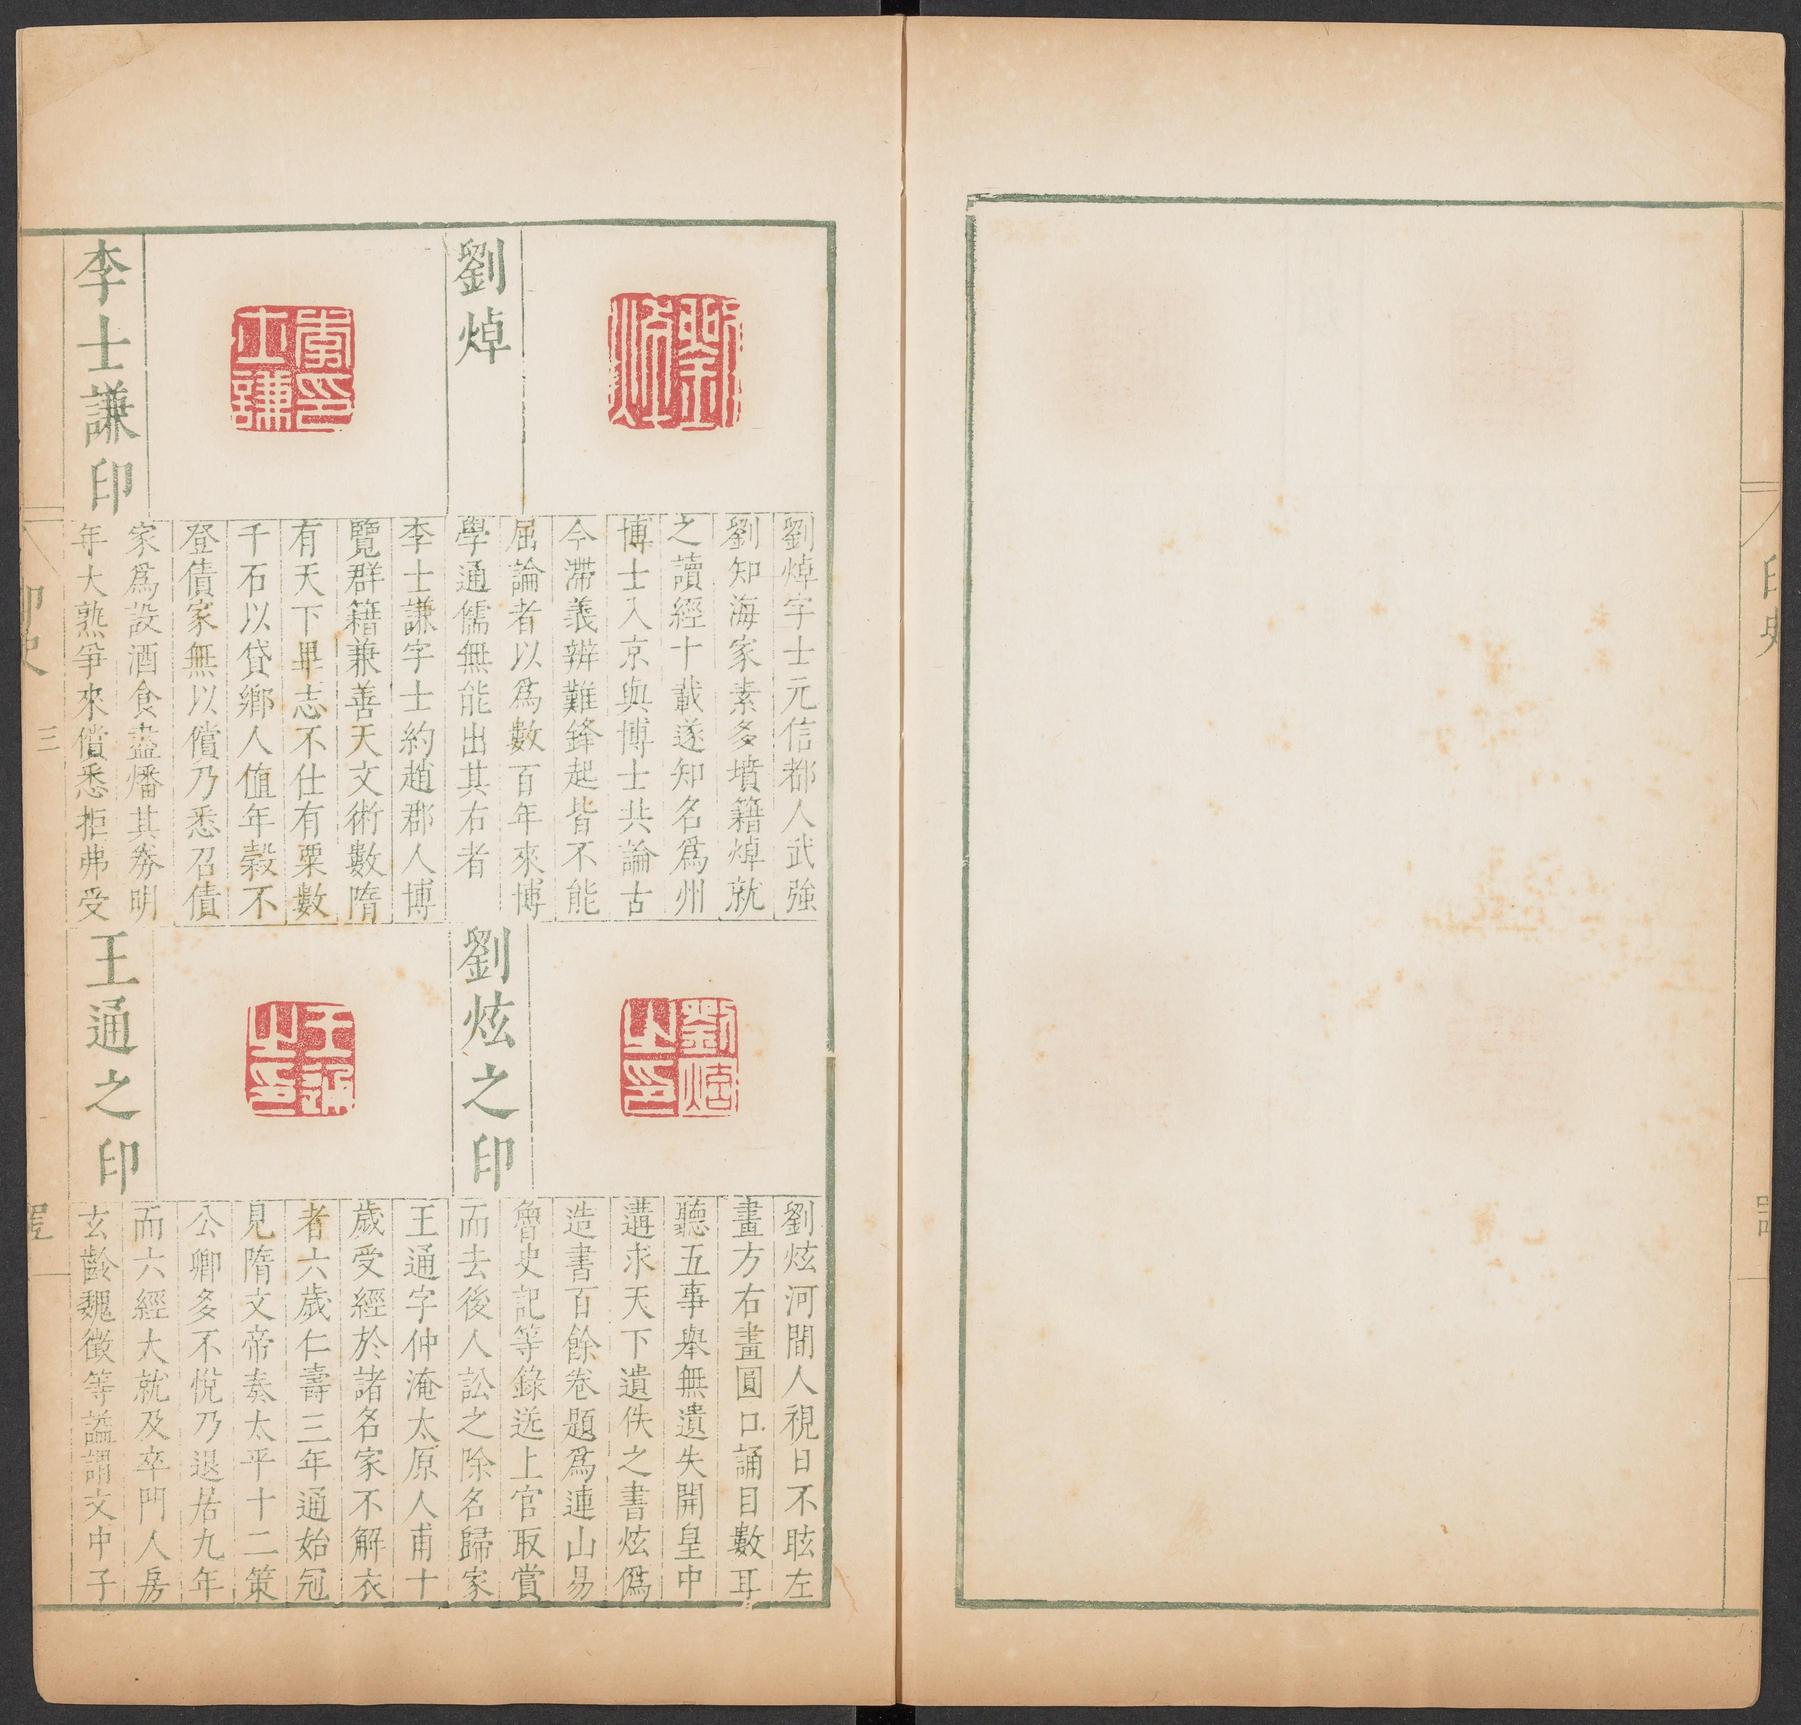 劉焯
劉焯字士元信都人武強
劉知海家素多墳籍焯就
之讀經十載遂知名為州
博士入京與博士共論古
今滯義辨難鋒起皆不能
屈論者以為數百年來博
學通儒無能出其右者
李士謙印
李士謙字士約趙郡人博
覽群籍兼善天文術數隋
有天下畢志不仕有粟數
千石以貸鄉人值年穀不
登債家無以償乃悉召債
家爲設酒食盡燔其券明
年大熟爭來償悉拒弗受
劉炫之印
劉炫河間人視日不眩左
畫方右畫圓口誦目數耳
聽五事舉無遺失開皇中
遘求天下遺佚之書炫僞
造書百餘卷題爲連山易
魯史記等錄送上官取賞
而去後人訟之除名歸家
王通之印
王通字仲淹太原人甫十
歲受經於諸名家不解衣
者六歲仁壽三年通始冠
見隋文帝奏太平十二策
公卿多不悅乃退居九年
而六經大就及卒門人房
玄齡魏徵等謚謂文中子
印史
三